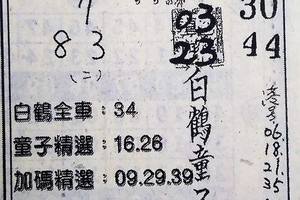 03
23
30
44
8 3
(二)
白鶴全車：34
童子精選：16.26
加碼精選：09.29.39
白鶴童
06.
18.
21.
35